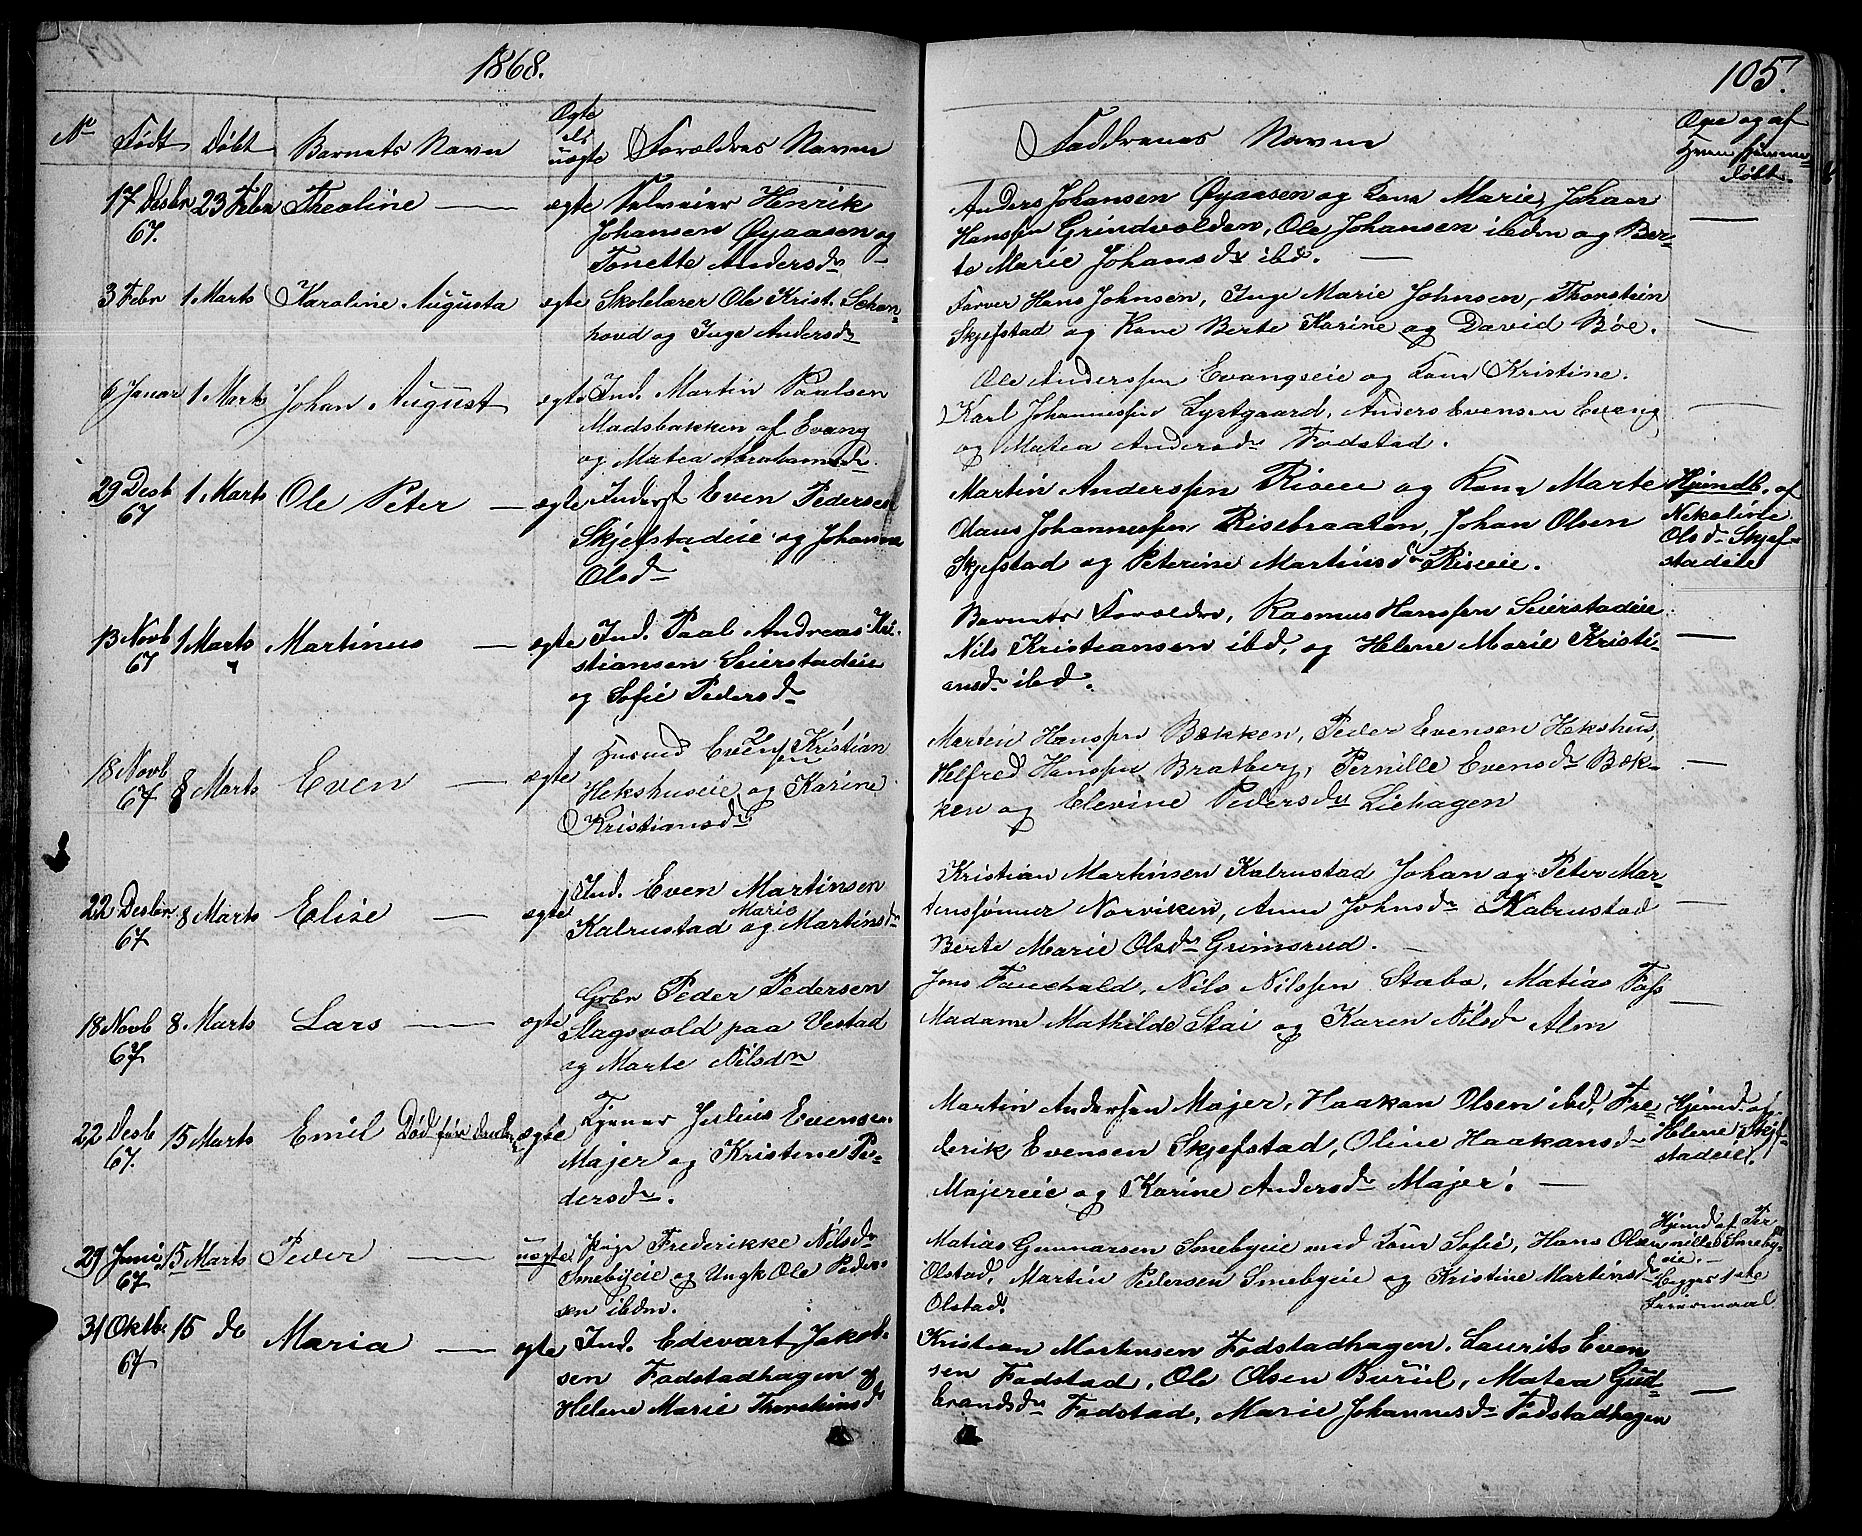 1868.
105.
No
Født
Døbt
Barnets Navn
Ægte
el.
uægte
Forældres Navne
Faddrenes Navne
Ope og af
hvem hjemme-
døbt.
17 Desbr 23 Febr Theoline — ægte
67.
Selveier Henrik
Johansen Øyaasen og
Tonette Andersdr
Anders Johansen Øyaasen og Kone Marie, Johan
Hanssen Grindvolden, Ole Johansen ibdm og Ber-
te Marie Johansdr ibd. —
3 Febr 1 Marts Karoline Augusta ægte
Skolelærer Ole Krist.
hovd og Inge Andersdr
Farver Hans Johnsen, Inge Marie Johnsen, Thorstein
Skjefstad og Kone Berte Karine og David Bøe.
6 Januar 1 Marts Johan August ægte
Ind. Martin Paalsen
Madsbakken af Evang
og Matea Abrahamsdr.
Ole Anderssen Evangseie og Kone Kristine.
Karl Johannessen Lystgaard, Anders Evensen Evang
og Matea Andersdr Fodstad.
29 Desb 1 Marts Ole Peter — ægte
67
Inderst Even Pedersen
Skjefstadeie og Johanne
Olsdr
Martin Anderssen Riseie og Kone Marte
Olaus Johannessen Risebraaten, Johan Olsen
Skjefstad og Peterine Martinsdr Riseeie.
Hjemdb. af
Nikoline
Olsdr Skjef-
stadeie
13 Novb 1 Marts Martinus — ægte
67
Ind. Paal Andreas Kri-
stiansen Seierstadeie
og Sofie Pedersdr
Barnets Forældre, Rasmus Hanssen Seierstadeie
Nils Kristiansen ibd, og Helene Marie Kristi-
ansdr ibd.
18 Novb 8 Marts Even — ægte
67
Husmd Even Kristian
sen
Hekshuseie og Karine
Kristiansdr
Martin Hanssen Bækken, Peder Evensen Hekshus,
Helfred Hanssen Bratberg, Pernille Evensdr Bæk-
ken og Elevine Pedersdr Liehagen
22 Desbr 8 Marts Elise — ægte
67
Ind. Even Martinsen
Marie
Kalrustad og Martinsdr
Kristian Martinsen Kalrustad Johan og Peter Mar-
tinssønner Norviken, Anne Johnsdr Kalrustad
Berte Marie Olsdr Grimsrud. —
18 Novb 8 Marts Lars — ægte
67
Gbr Peder Pedersen
Slagsvold paa Vestad
og Marte Nilsdr
Jens Fauchald, Nils Nilssen Stabo, Matias Foss
Madame Mathilde Stai og Karen Nilsdr Alm
22 Desb 15 Marts Emil Død før ægte
67.
Tjener Julius Evensen
Majer og Kristine Pe-
dersdr.
Martin Anderssen Majer, Haakon Olsen ibd, Fre-
derik Evensen Skjefstad, Oline Haakonsdr
Majereie og Karine Andersdr Majer. —
Hjemd. af
Helene Skjef-
stadeie
29 Juni 15 Marts Peder — uægte
67
Pige Frederikke Nilsdr
Smebyeie og Ungk Ole Peder-
sen ibdm.
Matias Gunnarsen Smebyeie med Kone Sofie, Hans Olsen
Olstad, Martin Pedersen Smebyeie og Kristine Martinsdr
Olstad.
Hjemd af Per
nille Smeby-
eie. —
Begges 1ste
Leiermaal
31 Oktbr 15 do Maria — ægte
67
Ind. Edevart Jakob-
sen Fodstadhagen og
Helene Marie Thorstensdr
Kristian Mortensen Fodstadhagen. Laurits Even
sen Fodstad, Ole Olsen Buriel, Matea Gud-
brandsdr Fodstad, Marie Johannesdr Fodstadhagen